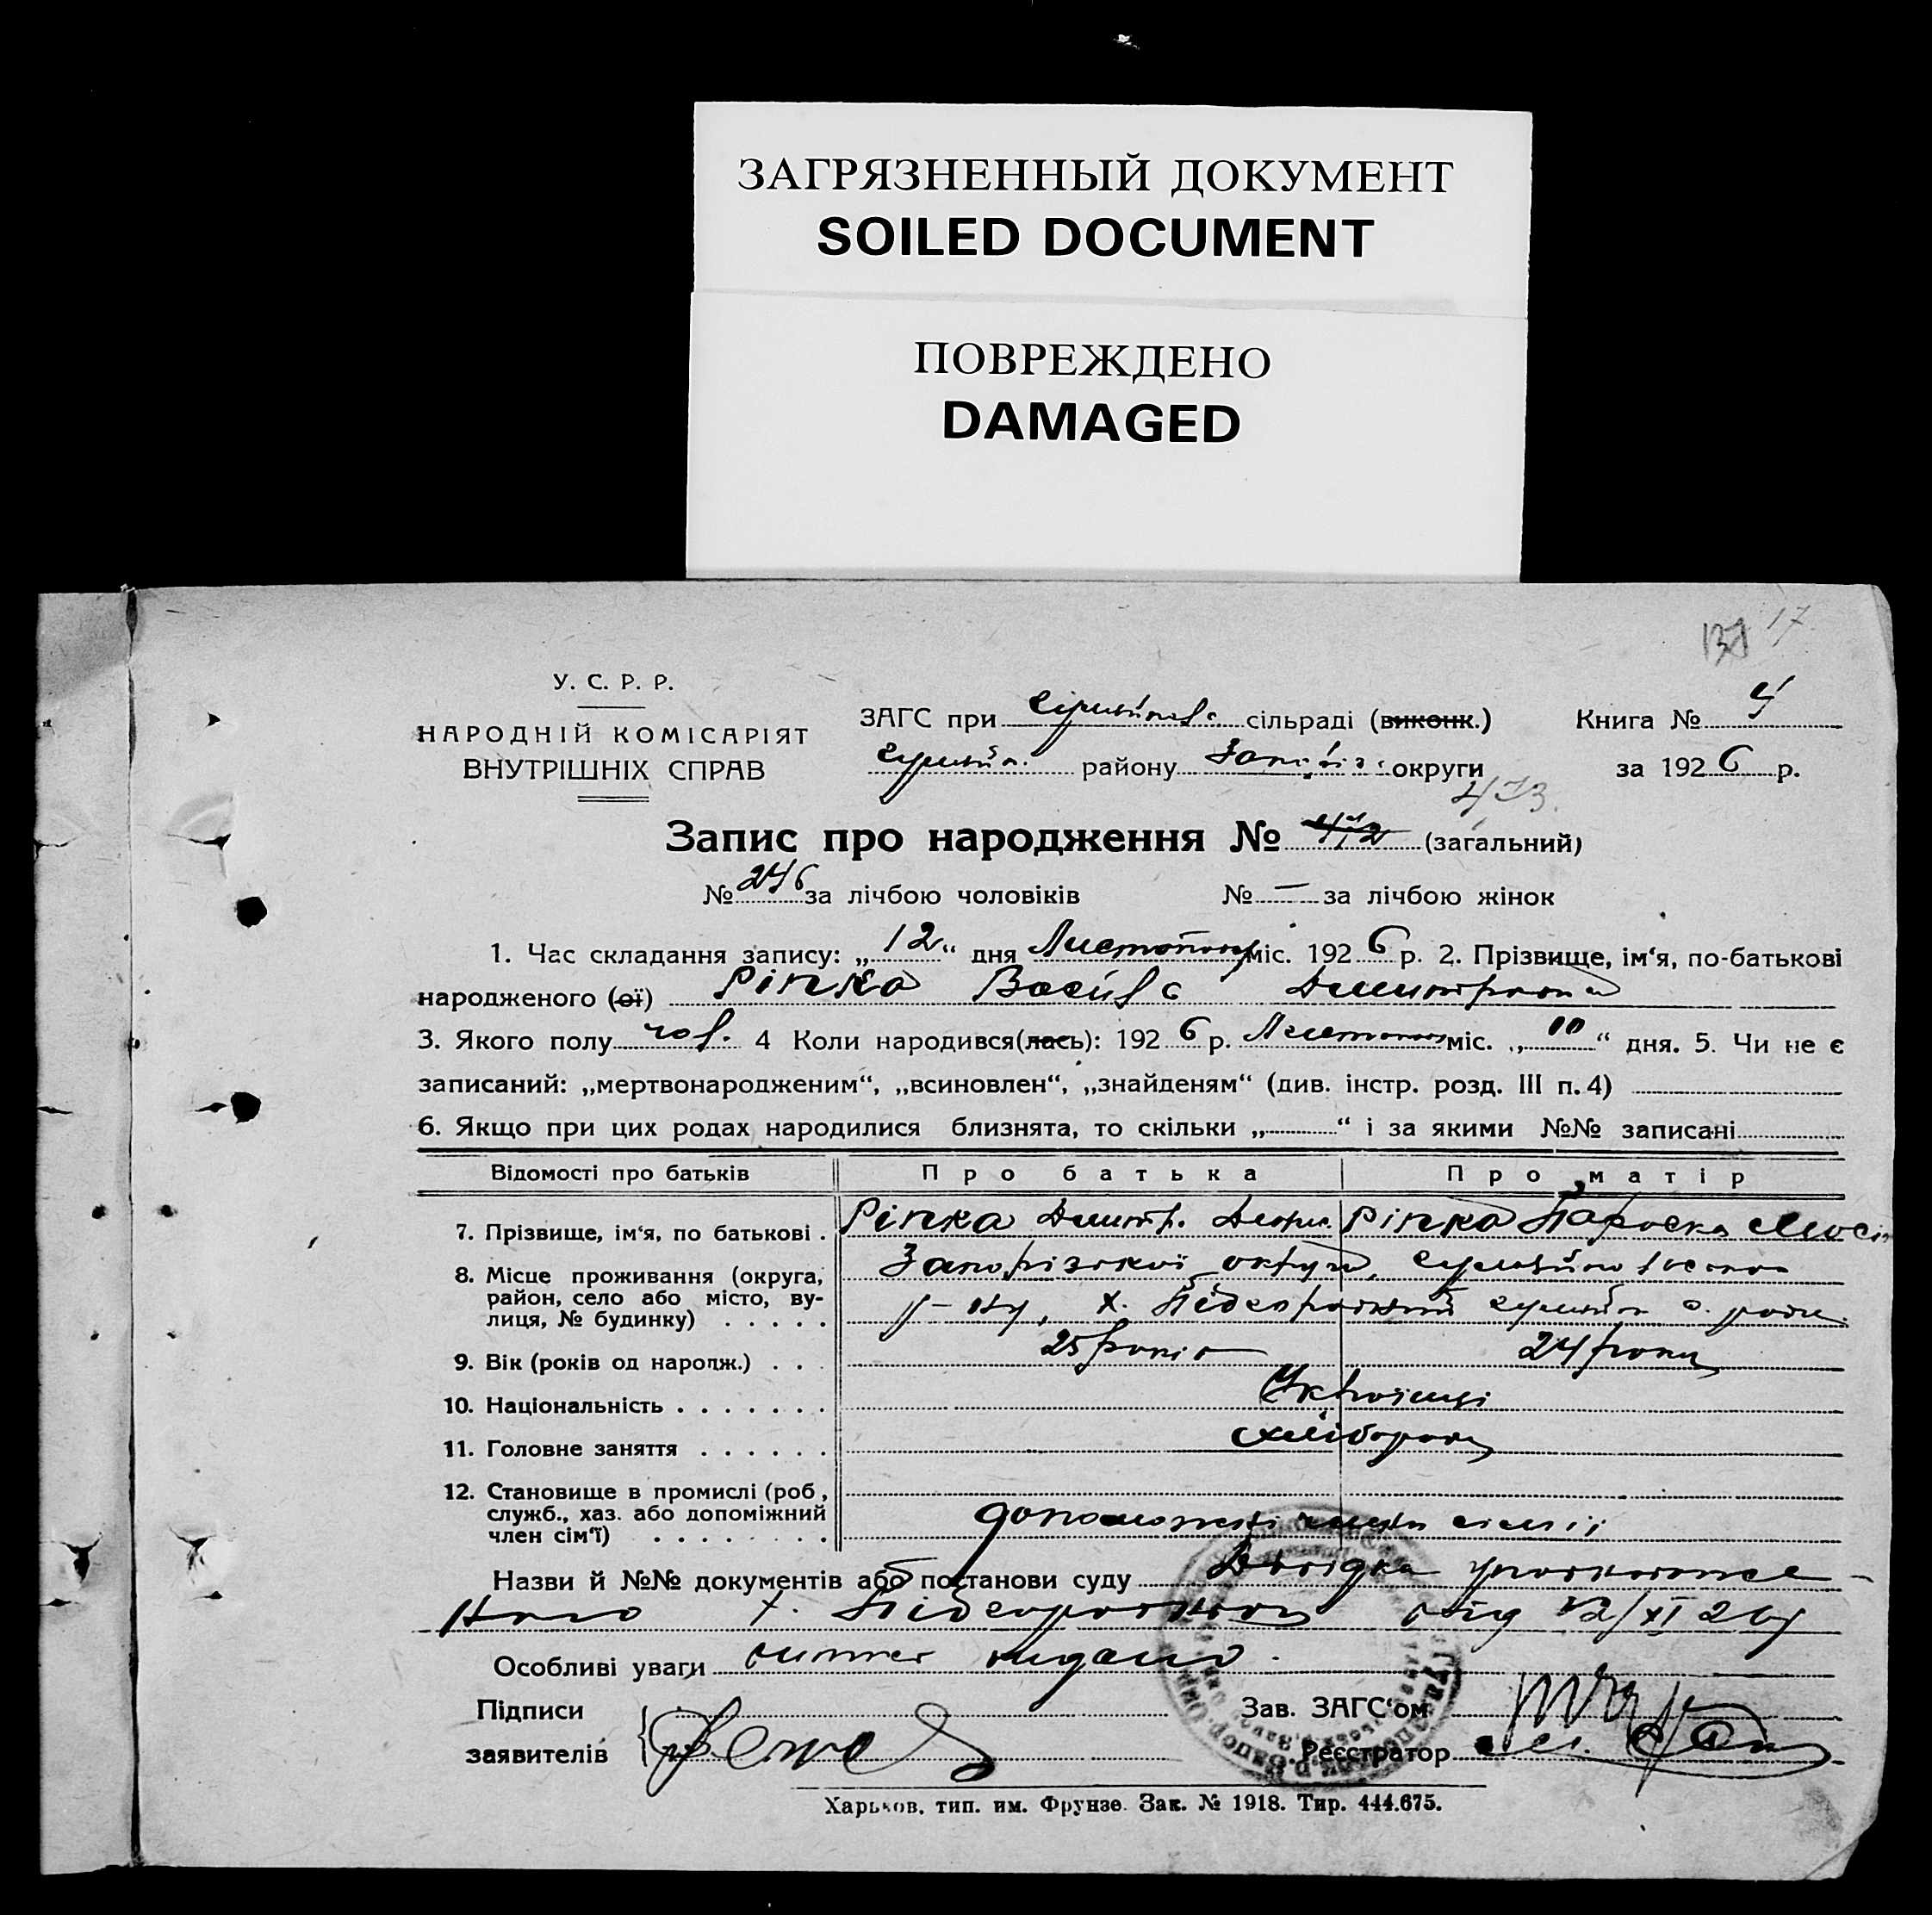 ЗАГРЯЗНЕННЫЙ ДОКУМЕНТ
SOILED DOCUMENT
ПОВРЕЖДЕНО
DAMAGED
17
У. С. Р. Р.
НАРОДНІЙ КОМІСАРІЯТ
ВНУТРІШНІХ СПРАВ
ЗАГС при сільраді (виконк.)
Книга № 4
району округи
за 1926 р.
473
Запис про народження № 472 (загальний)
№ 246 за лічбою чоловіків № — за лічбою жінок
1. Час складання запису: „12“ дня Листопад міс. 1926 р. 2. Прізвище, ім‘я, по-батькові
народженого (ої) Ріпка Василь
3. Якого полу чол. 4 Коли народився(лась): 1926 р. Листопад міс. „10“ дня. 5. Чи не є
записаний: „мертвонародженим“, „всиновлен“, „знайденям“ (див. інстр. розд. III п. 4)
6. Якщо при цих родах народилися близнята, то скільки „ “ і за якими №№ записані
Відомості про батьків Про батька Про матір
7. Прізвище, ім‘я, по батькові . Ріпка Дмитр. Ріпка Параска
8. Місце проживання (округа, Запорізької округи,
район, село або місто, ву-
лиця, № будинку) . . . . . р-ну, х.
9. Вік (років од народж.) . . . 25 років 24 роки
10. Національність . . . . . . . Українці
11. Головне заняття . . . . . . Хлібороби
12. Становище в промислі (роб,
служб., хаз. або допоміжний
член сім‘ї) . . . . . . . . члени сім'ї
Назви й №№ документів або постанови суду Довідка
х. від 12/XI 26
Особливі уваги видано.
Підписи
заявителів
Зав. ЗАГС‘ом
Реєстратор
Харьков, тип. им. Фрунзе. Зак. № 1918. Тир. 444.675.